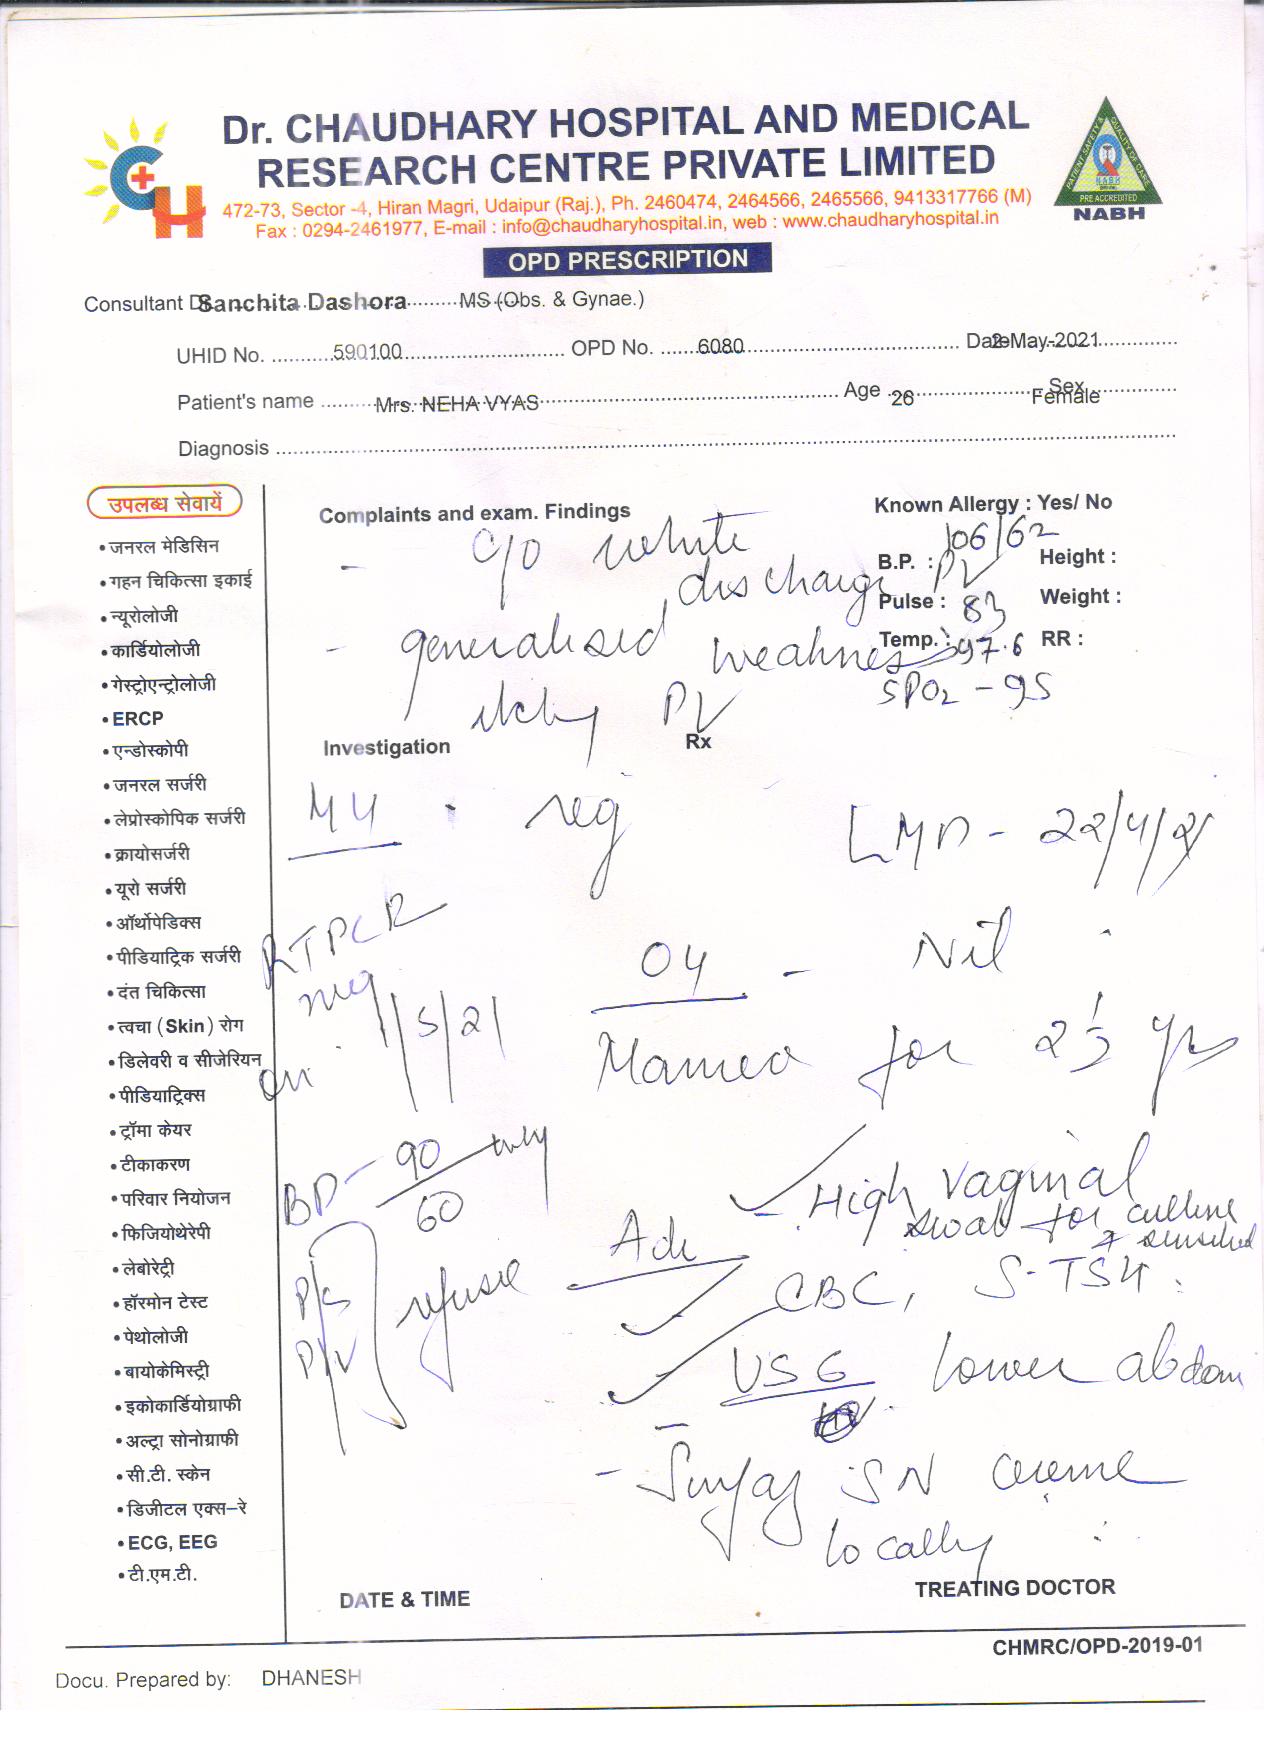 Dr. CHAUDHARY HOSPITAL AND MEDICAL
RESEARCH CENTRE PRIVATE LIMITED
472-73, Sector -4, Hiran Magri, Udaipur (Raj.), Ph. 2460474, 2464566, 2465566, 9413317766 (M)
Fax : 0294-2461977, E-mail : info@chaudharyhospital.in, web : www.chaudharyhospital.in
PATIENT SAFETY & QUALITY OF CARE
NABH
PRE ACCREDITED
NABH
OPD PRESCRIPTION
Consultant Dr. Sanchita Dashora MS (Obs. & Gynae.)
UHID No. 590100 OPD No. 6080 Date 2-May-2021
Patient's name Mrs. NEHA VYAS Age 26 Sex Female
Diagnosis
उपलब्ध सेवायें
• जनरल मेडिसिन
• गहन चिकित्सा इकाई
• न्यूरोलोजी
• कार्डियोलोजी
• गेस्ट्रोएन्ट्रोलोजी
• ERCP
• एन्डोस्कोपी
• जनरल सर्जरी
• लेप्रोस्कोपिक सर्जरी
• क्रायोसर्जरी
• यूरो सर्जरी
• ऑर्थोपेडिक्स
• पीडियाट्रिक सर्जरी
• दंत चिकित्सा
• त्वचा (Skin) रोग
• डिलेवरी व सीजेरियन
• पीडियाट्रिक्स
• ट्रॉमा केयर
• टीकाकरण
• परिवार नियोजन
• फिजियोथेरेपी
• लेबोरेट्री
• हॉरमोन टेस्ट
• पेथोलोजी
• बायोकेमिस्ट्री
• इकोकार्डियोग्राफी
• अल्ट्रा सोनोग्राफी
• सी.टी. स्केन
• डिजीटल एक्स-रे
• ECG, EEG
• टी.एम.टी.
Complaints and exam. Findings
Known Allergy : Yes/ No
B.P. : 106/62 Height :
Pulse : 83 Weight :
Temp. : 97.6 RR :
SPO2 - 95
- c/o white
discharge PV
- generalised weakness
itchy PV
Investigation Rx
MH - reg LMP - 22/4/21
RTPCR
neg
on 1/5/21
OH - Nil
Married for 2½ yrs
BP - 90
60
P/S
P/V refused
Adv
- High vaginal
swab for culture
CBC, S-TSH
USG lower abdom
SN creme
locally
DATE & TIME TREATING DOCTOR
CHMRC/OPD-2019-01
Docu. Prepared by: DHANESH